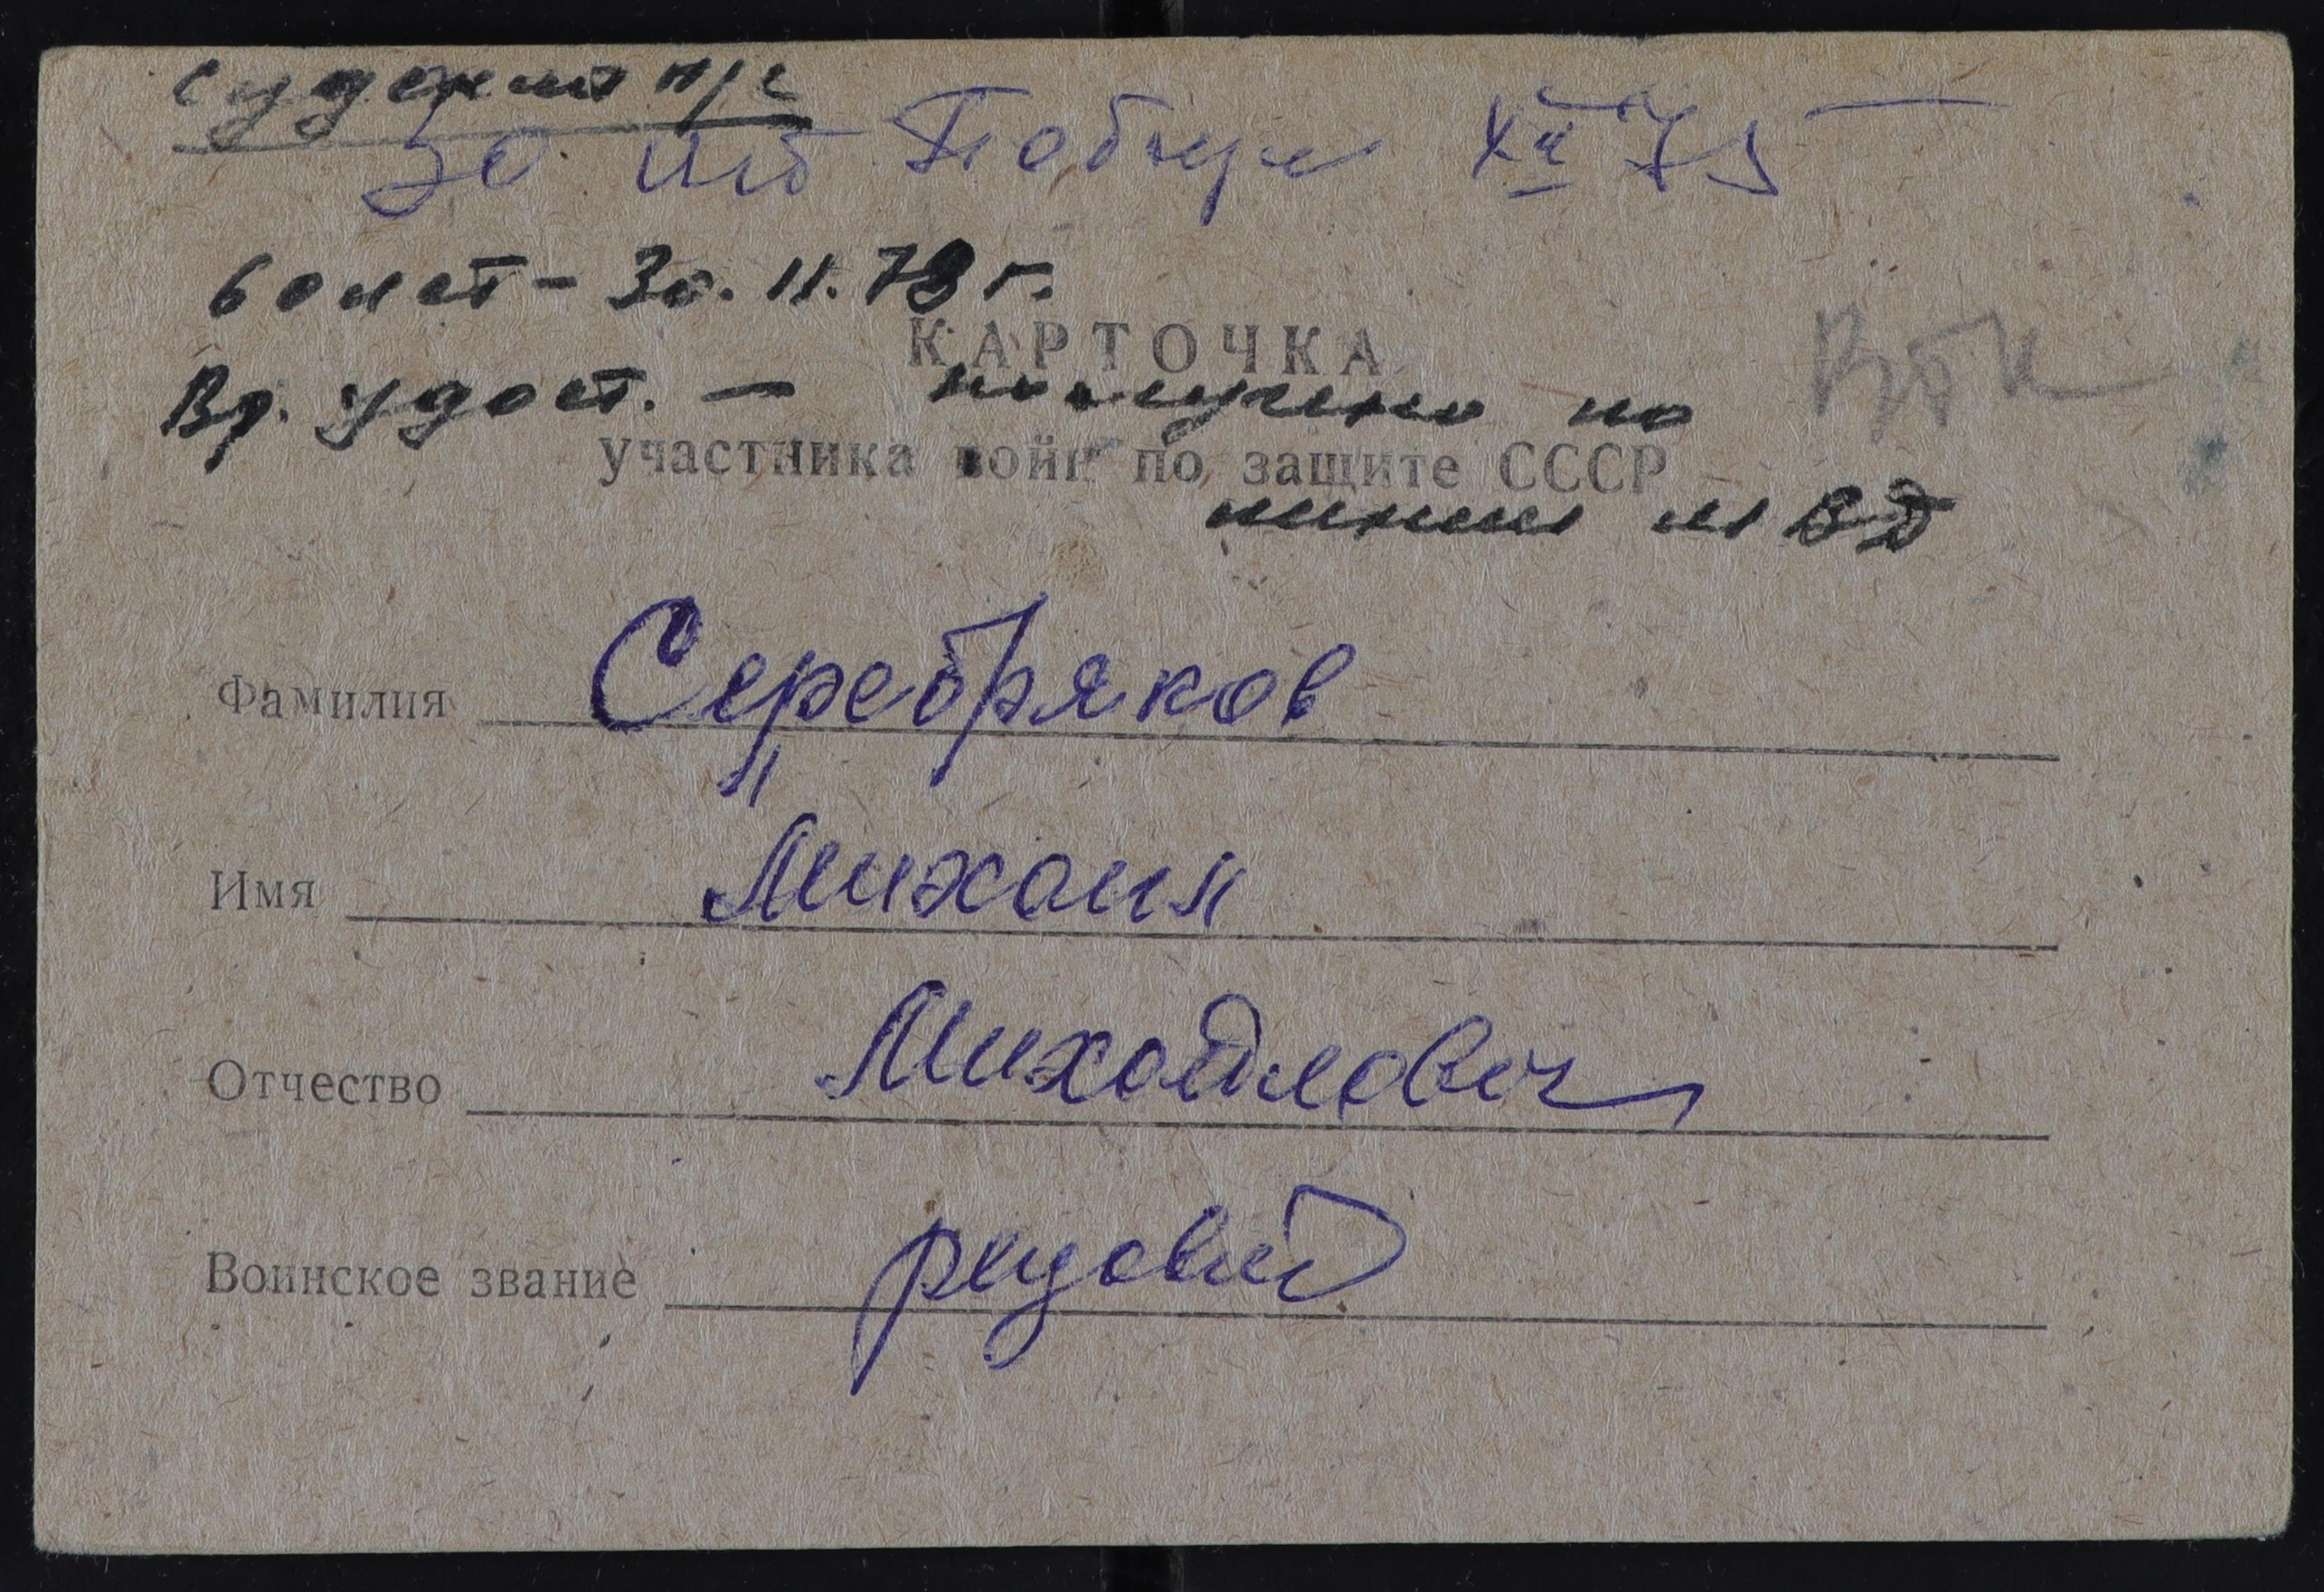 30 лет Победы XII 75
60 лет - 30.11.78 г.
КАРТОЧКА
Вр. удост. - получено по
участника войн по защите СССР
линии МВД
Фамилия Серебряков
Имя Михаил
Отчество Михайлович
Воинское звание рядовой